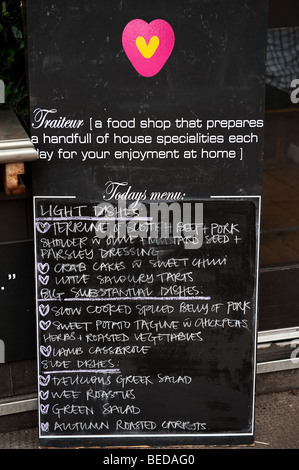 Traiteur [ a food shop that prepares
a handfull of house specialities each
day for your enjoyment at home ]
Todays menu:
LIGHT DISHES
TERRINE of SCOTCH BEEF + PORK
SHOULDER w OLIVE + MUSTARD SEED +
PARSLEY DRESSING
CRAB CAKES w SWEET CHILLI
LITTLE SAVOURY TARTS
BIG SUBSTANTIAL DISHES:
SLOW COOKED SPICED BELLY OF PORK
SWEET POTATO TAGINE w CHICKPEAS
HERBS + ROASTED VEGETABLES
LAMB CASSEROLE
SIDE DISHES:
DELICIOUS GREEK SALAD
WEE ROASTIES
GREEN SALAD
AUTUMN ROASTED CARROTS
alamy
Image ID: BEDAG0
www.alamy.com